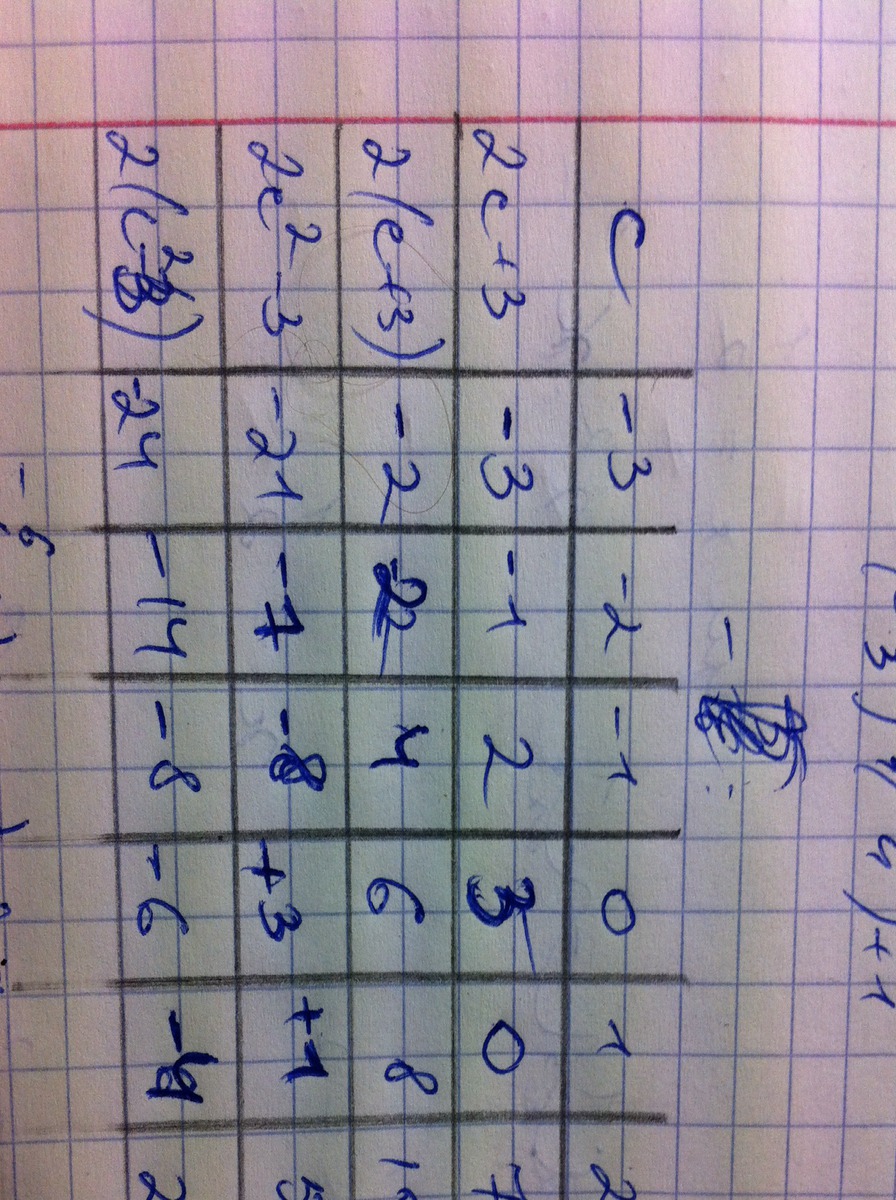 (-3)(4)+1
c -3 -2 -1 0 1 2
2c+3 -3 -1 2 3 0 7
2(c+3) -2 2 4 6 8
2c²-3 -21 -7 -8 +3 +1 5
2(c²-3) -24 -14 -8 -6 -4 2
-6